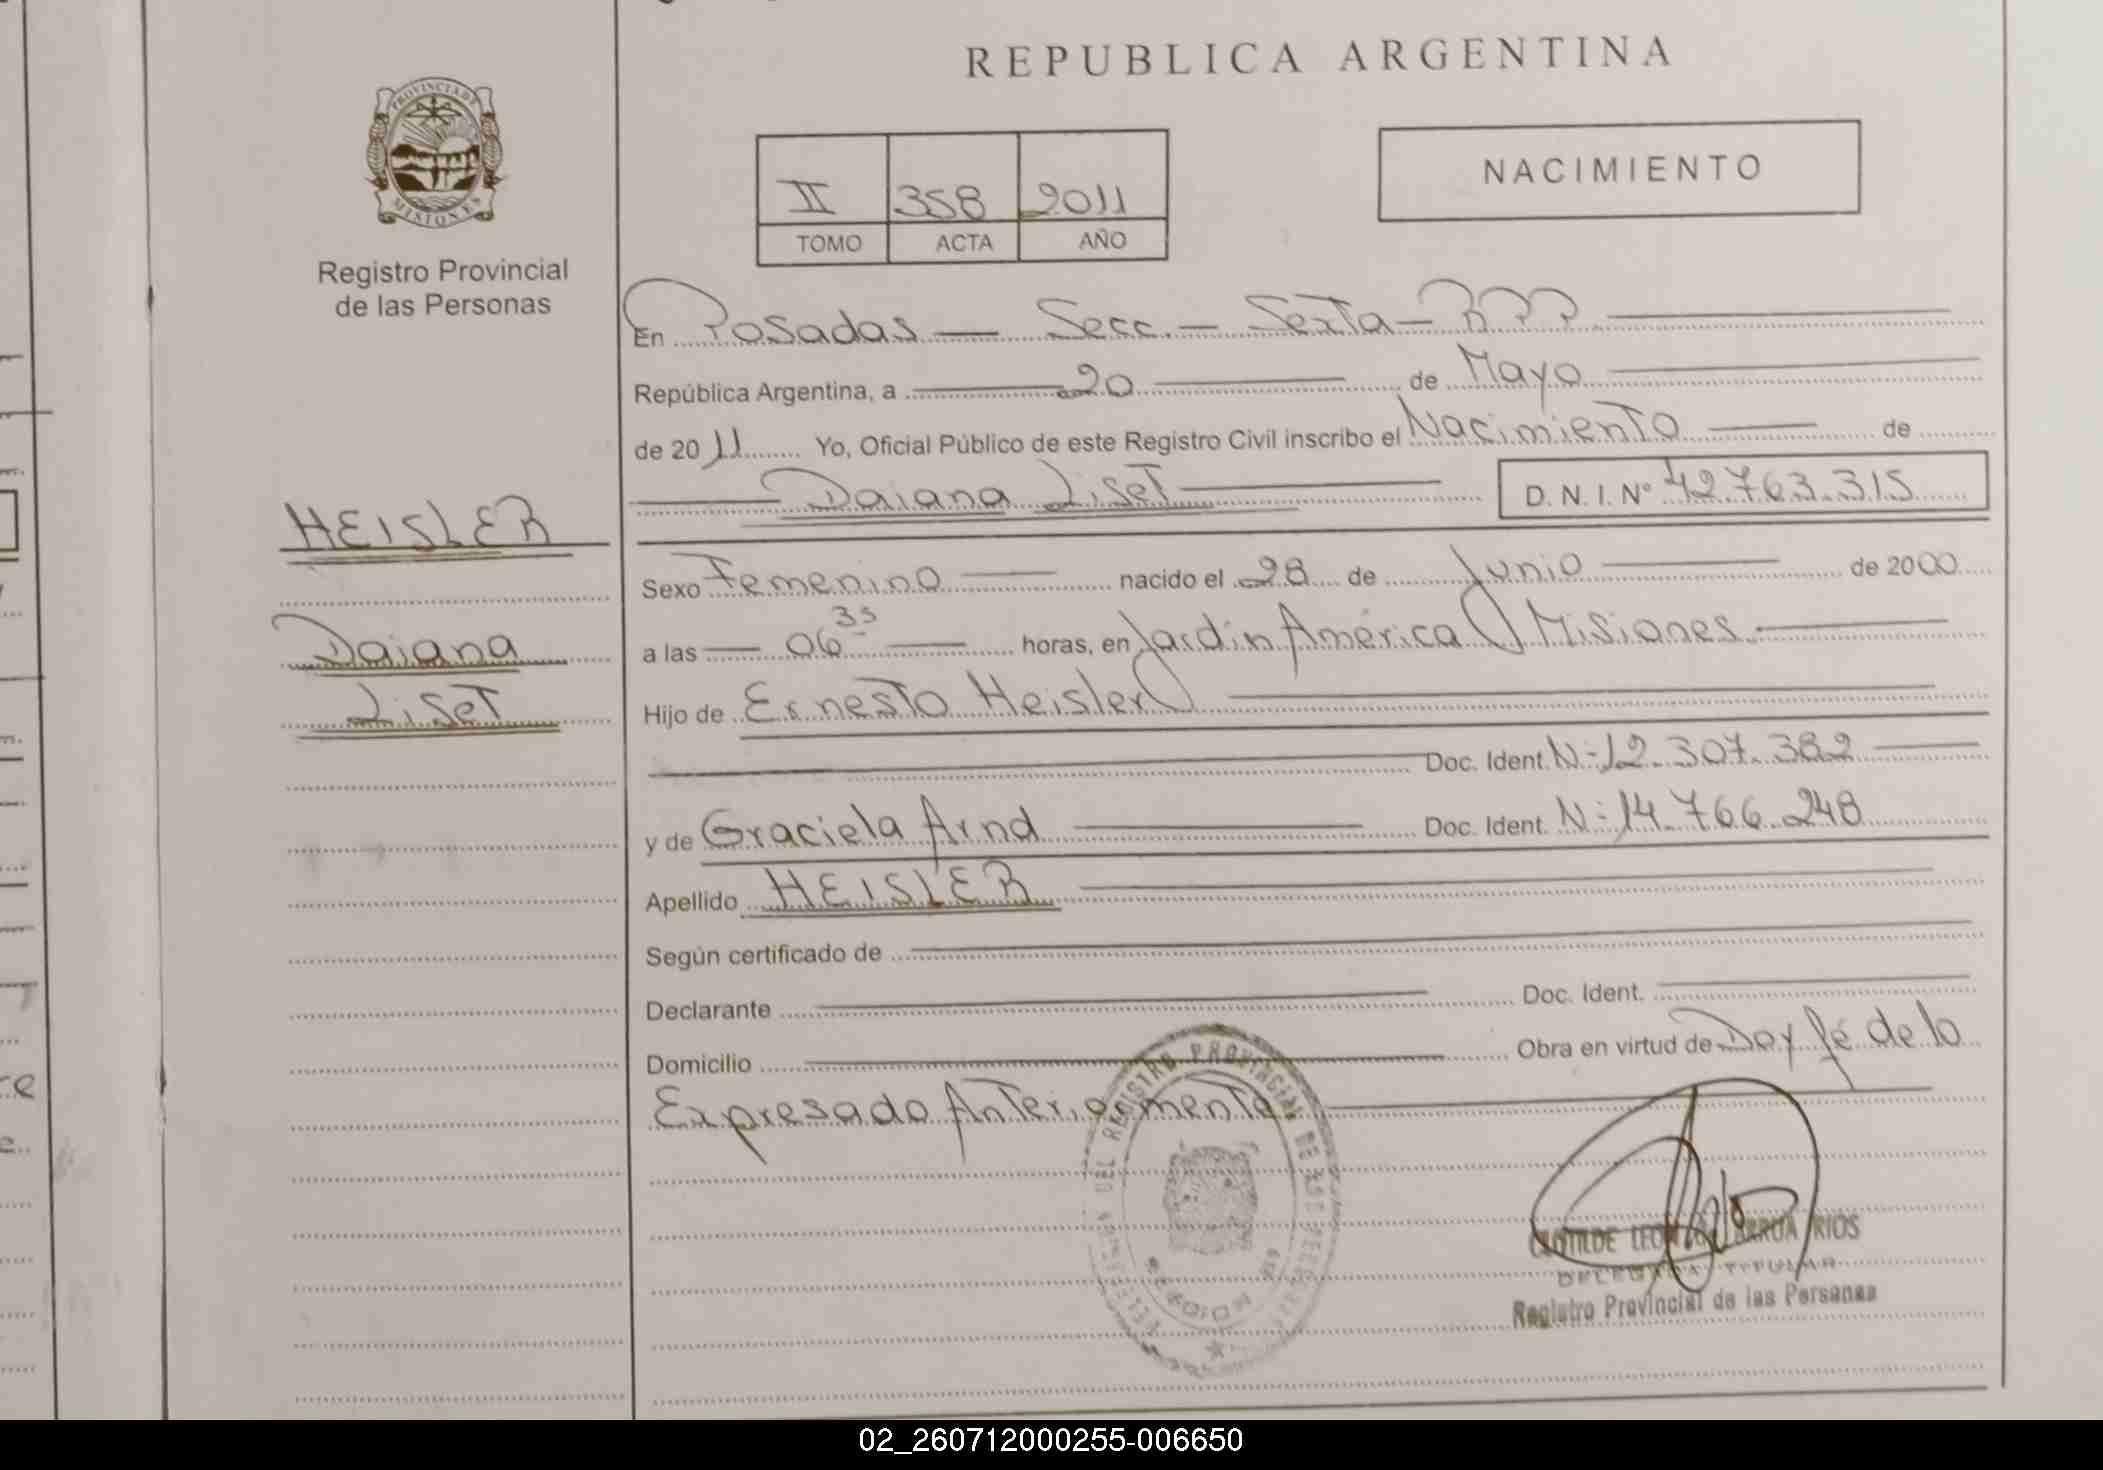 REPUBLICA ARGENTINA
PROVINCIA DE
MISIONES
Registro Provincial
de las Personas
II 358 2011
TOMO ACTA AÑO
NACIMIENTO
En Posadas — Secc. — Sexta — RPP
República Argentina, a 20 de Mayo
de 2011 Yo, Oficial Público de este Registro Civil inscribo el Nacimiento de
Daiana Liset D. N. I. Nº 42.763.315
HEISLER
Daiana
Liset
Sexo Femenino nacido el 28 de Junio de 2000
a las 06 35 horas, en Jardin América Misiones
Hijo de Ernesto Heisler
Doc. Ident. N-12.307.382
y de Graciela Arnd Doc. Ident. N-14.766.248
Apellido HEISLER
Según certificado de
Declarante Doc. Ident.
Domicilio Obra en virtud de Doy fé de lo
Expresado Anteriormente
DEL REGISTRO PROVINCIAL DE LAS PERSONAS
CLOTILDE RIOS
DELEGADA TITULAR
Registro Provincial de las Personas
02_260712000255-006650